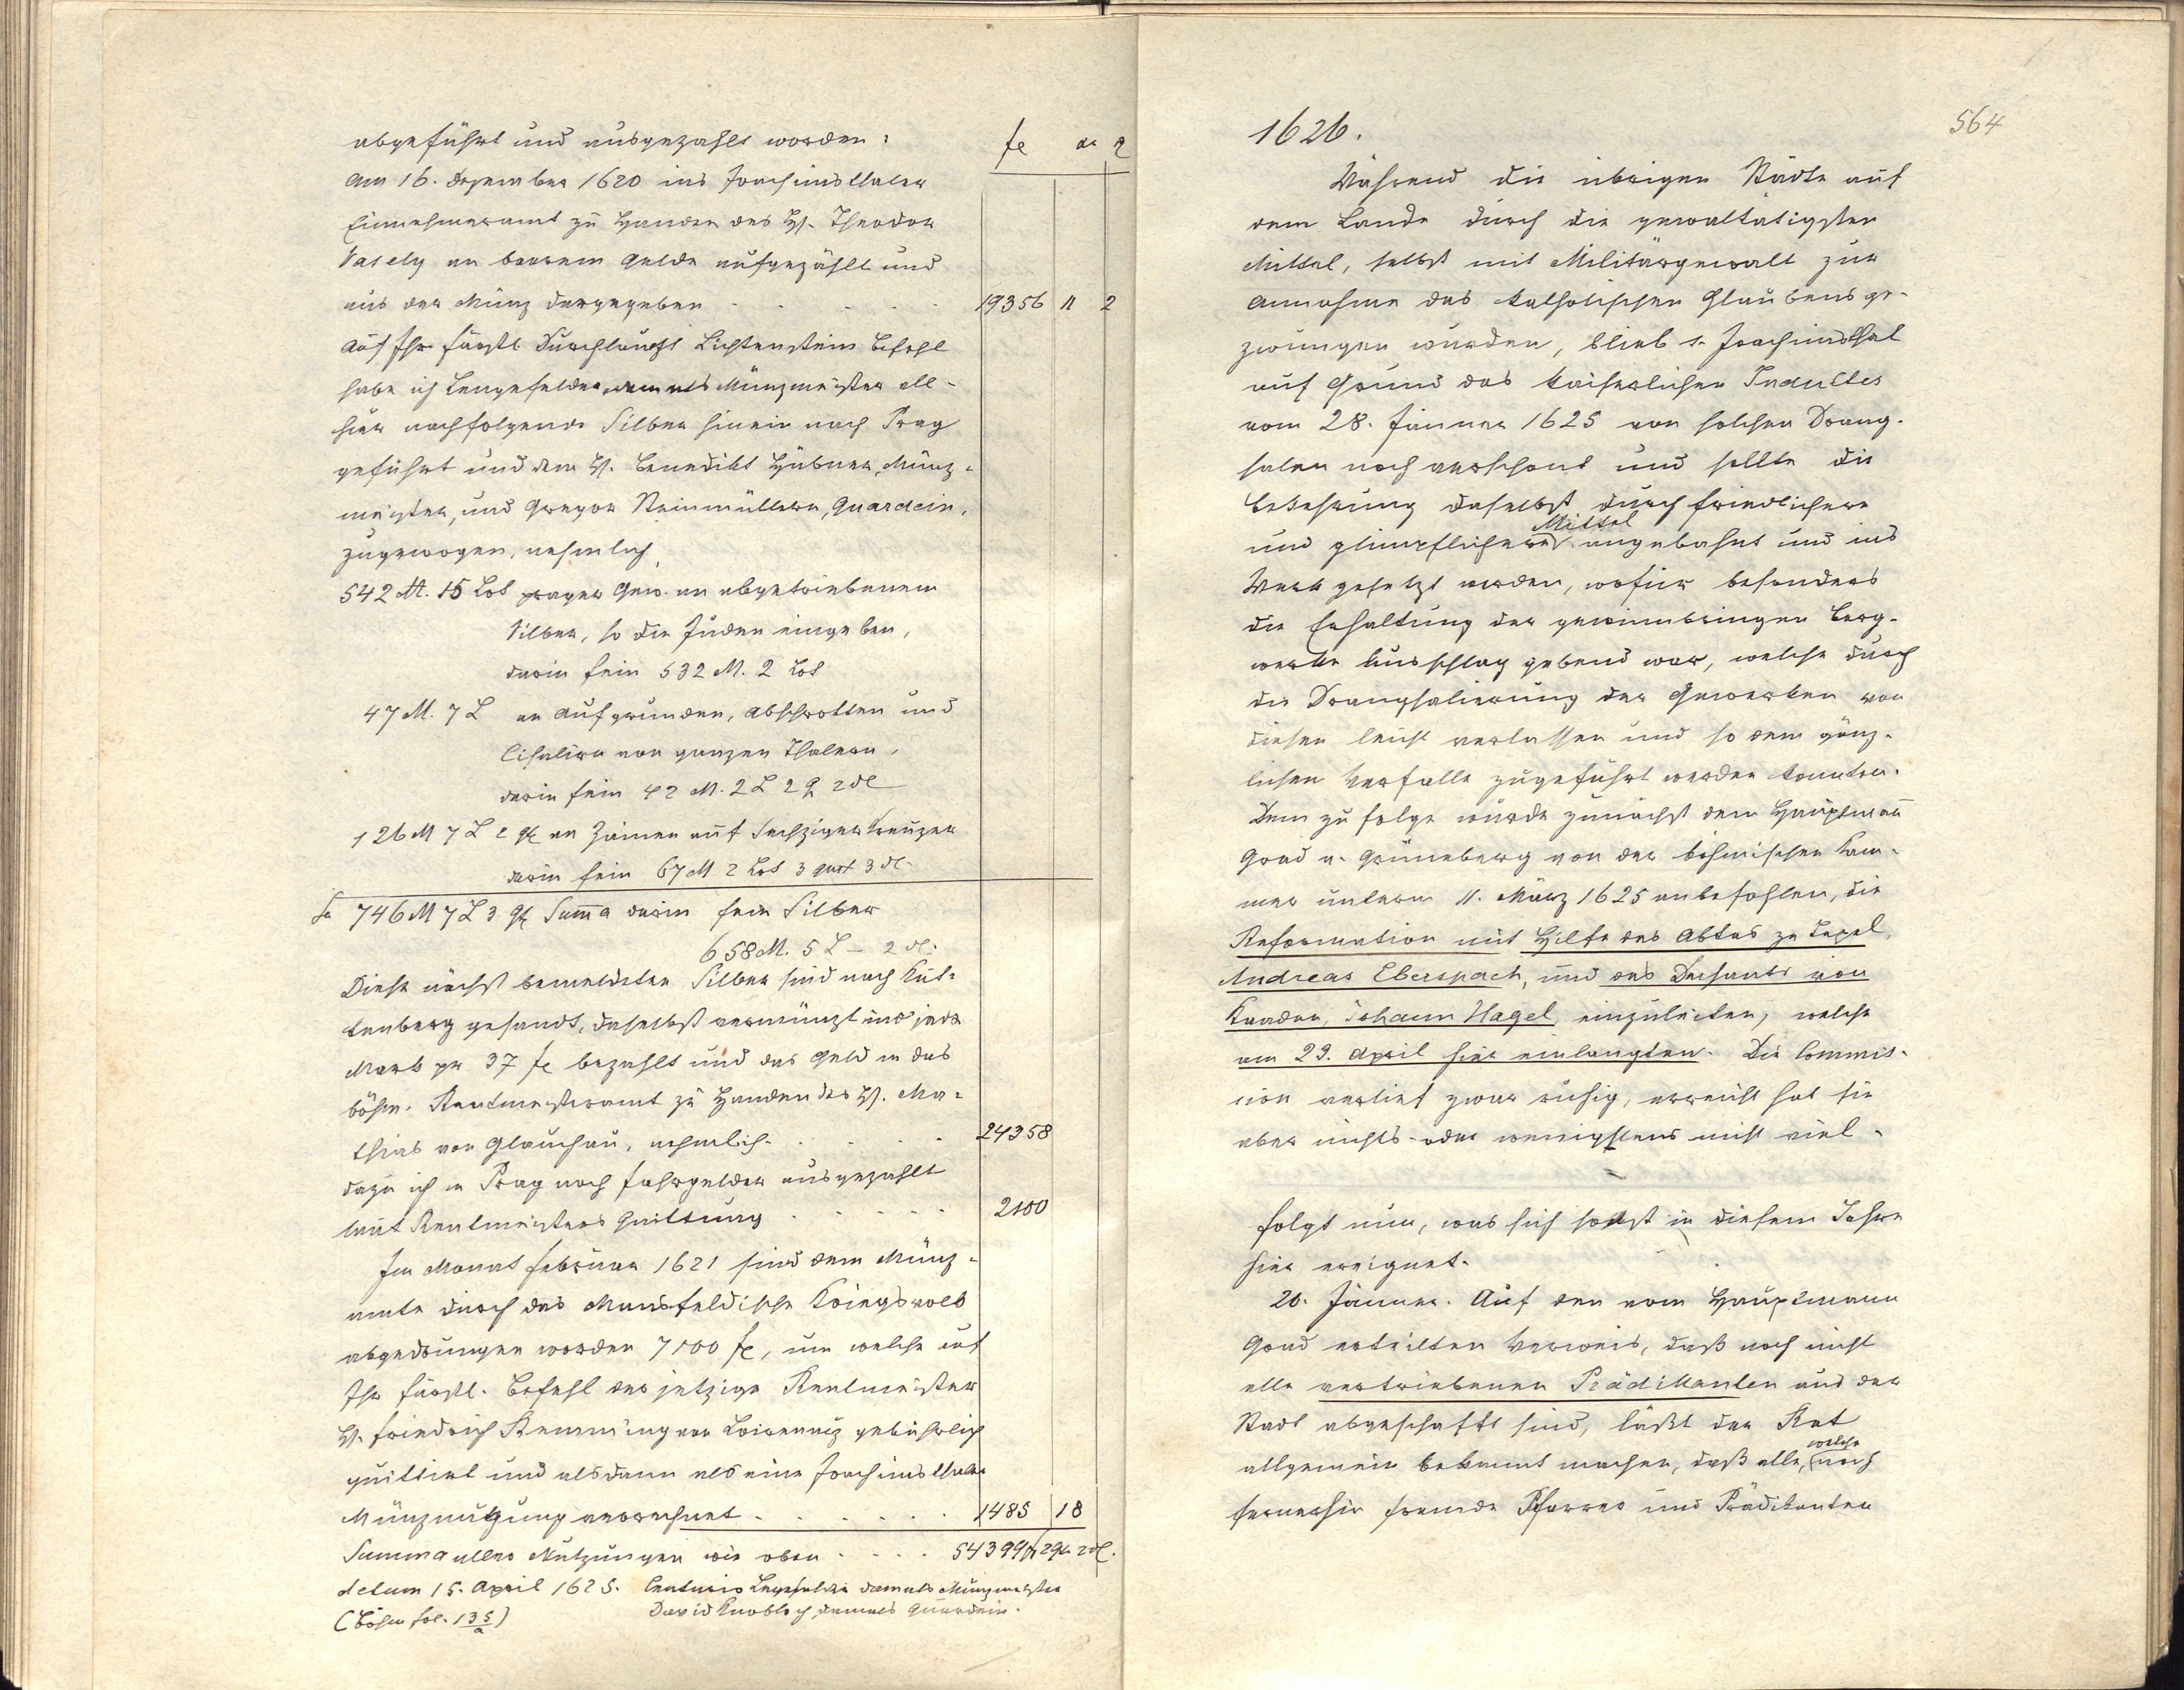 abgeführt und ausgezahlt worden:
fl gr ₰
Am 16. Dezember 1620 ins Joachimsthaler
Einnehmeramt zu Handen des H. Theodor
Vasely an baarem Gelde aufgezählt und
aus der Münz dargegeben . . . . . 19356 11 2
Auf Ihr fürstl. Durchlaucht Lichtenstein Befehl
habe ich Lengefelder, damals Münzmeister all-
hier nachfolgende Silber hinein nach Prag
geführt und dem H. Benedikt Hübner, Münz-
meister, und Gregor Steinmüllern, Guardein,
zugewogen, nehmlich
542 M. 15 Lot prager Gew. an abgetriebenem
Silber, so die Juden eingeben,
darin fein 532 M. 2 Lot
47 M. 7 L an Aufgrunden, Abschrotten und
Cisalirn von ganzen Thalern,
darin fein 42 M. 2 L 2 q 2 ₰
126 M 7 L 2 q an Zainen auf Sechziger Kreuzer
darin fein 67 M 2 Lot 3 quat 3 ₰.
Sa 746 M 7 L 3 q Summa darin fein Silber
658 M. 5 L – 2 ₰.
Diese nächst bemeldeten Silber sind nach Kut-
tenberg gesandt, daselbst vermünzt und jede
Mark per 37 fl bezahlt und das Geld in das
böhm. Rentmeisteramt zu Handen des H. Ma-
thias von Glauchau, nehmlich . . . . . 24358
dazu ich in Prag noch Fuhrgelder ausgezahlt
laut Rentmeisters Quittung . . . . . 2100
Im Monat Februar 1621 sind dem Münz-
amte durch das Mansfeldische Kriegsvolk
abgedrungen worden 7100 fl, um welche auf
Ihr fürstl. Befehl der jetzige Rentmeister
H. Friedrich Remming von gebührlich
quittiert und alsdann als eine Joachimsthaler
Münznutzung verrechnet . . . . . . 1485 18
Summa aller Nutzungen wie oben . . . . 54399 fl 29 gr 2 ₰.
datum 15. April 1625. Centurio Lengefelder damals Münzmeister
(Böhm fol. 135/a) David Knobloch, damals Guardein.
564
1626.
Während die übrigen Städte auf
dem Lande durch die gewaltätigsten
Mittel, selbst mit Militärgewalt zur
Annahme des katholischen Glaubens ge-
zwungen wurden, blieb s. Joachimsthal
auf Grund des kaiserlichen Indultes
vom 28. Jänner 1625 von solchen Drang-
salen noch verschont und sollte die
Bekehrung daselbst durch friedlichere
und glimpflichere Mittel angebahnt und ins
Werk gesetzt werden, wofür besonders
die Erhaltung der gewinnbringen Berg-
werke Ausschlag gebend war, welche durch
die Drangsalierung der Gewerken von
diesen leicht verlassen und so dem gänz-
lichen Verfalle zugeführt werden konnten.
Dem zu folge wurde zunächst dem Hauptmann
Grad v. Grüneberg von der böhmischen Kam-
mer unterm 11. März 1625 anbefohlen, die
Reformation mit Hilfe des Abtes zu Tepel,
Andreas Eberspach, und des Dechants von
Kaaden, Johann Hagel, einzuleiten, welche
am 29. April hier einlangten. Die Commis-
sion verlief zwar ruhig, erreicht hat sie
aber nichts oder wenigstens nicht viel.
Folgt nun, was sich sonst in diesem Jahre
hier ereignet.
20. Jänner. Auf den vom Hauptmann
Grad erteilten Verweis, daß noch nicht
alle vertriebenen Prädikanten aus der
Stadt abgeschafft sind, läßt der Rat
allgemein bekannt machen, daß alle, welche noch
fernerhin fremde Pfarrer und Prädikanten